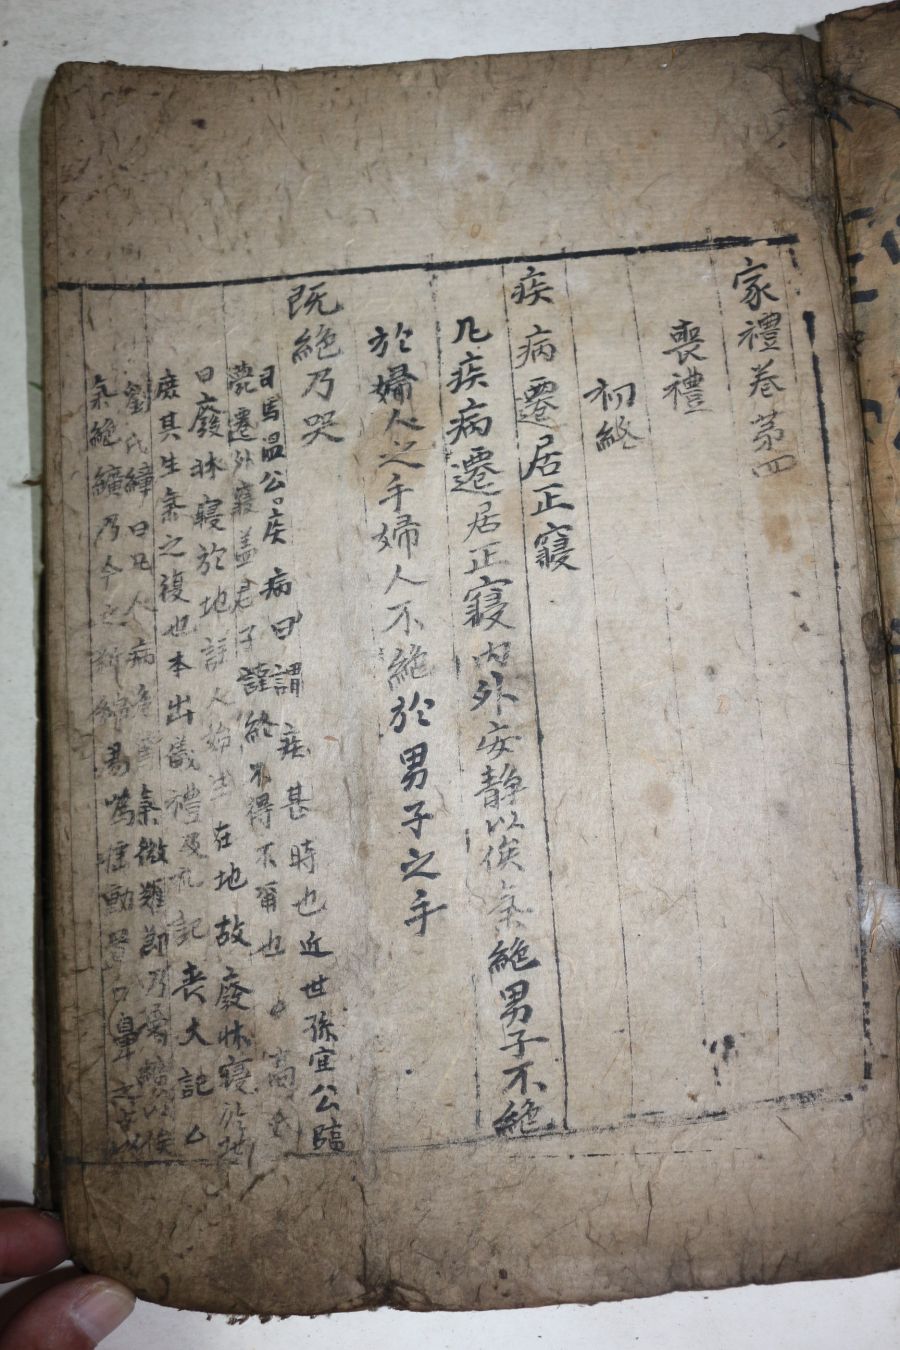 家禮卷第四
喪禮
初終
疾病遷居正寢
凡疾病遷居正寢內外安靜以俟氣絕男子不絕
於婦人之手婦人不絕於男子之手
既絕乃哭
司馬溫公曰疾病曰謂疾甚時也近世孫宣公臨
薨遷外寢盖君子謹終不得不爾也。高氏
曰廢牀寢於地註人始生在地故廢牀寢於地
庶其生氣之復也本出儀禮及礼記喪大記
劉氏璋曰凡人病氣微難節乃屬纊以俟
氣絕纊乃今之新綿易爲搖動置口鼻之上以